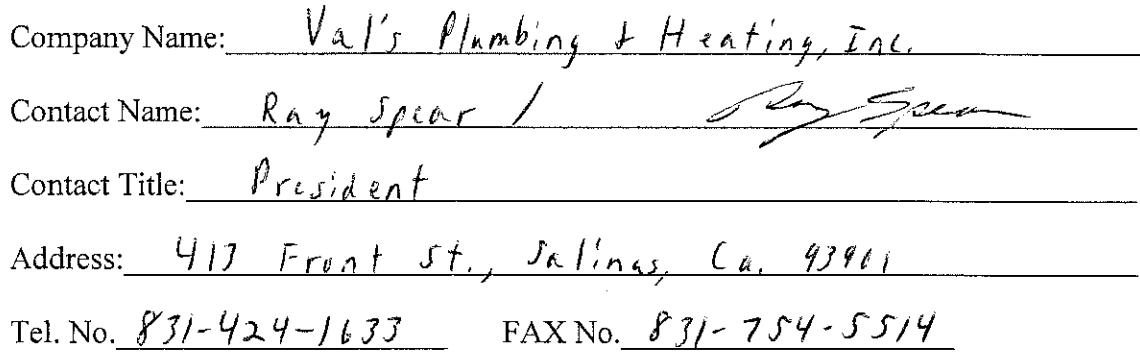 Company Name: Val's Plumbing & Heating, Inc.
Contact Name: Ray Spear / Ray Spear
Contact Title: President
Address: 413 Front St., Salinas, Ca. 93901
Tel. No. 831-424-1633 FAX No. 831-754-5514